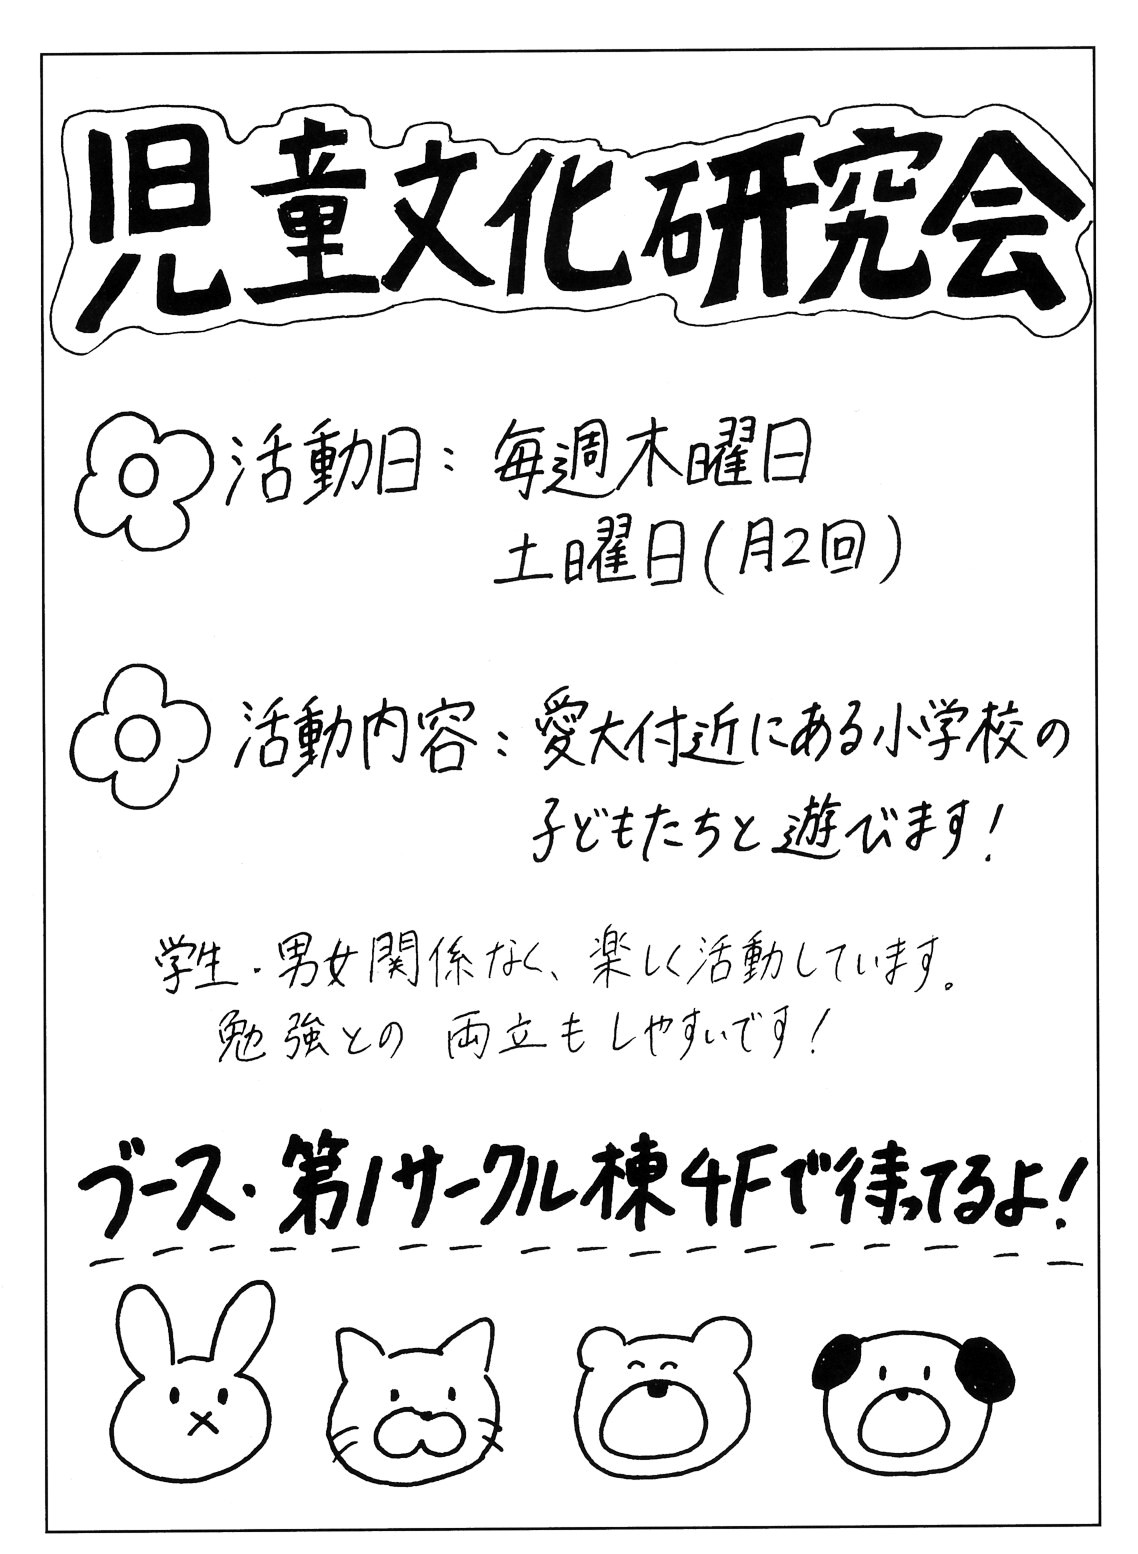 児童文化研究会
活動日：毎週木曜日
土曜日(月2回)
活動内容：愛大付近にある小学校の
子どもたちと遊びます！
学生・男女関係なく、楽しく活動しています。
勉強との両立もしやすいです！
ブース・第1サークル棟4Fで待ってるよ！